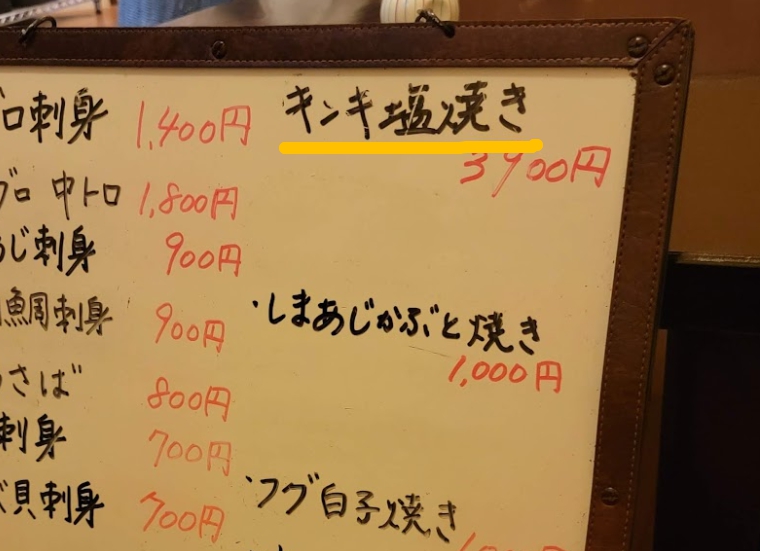 ロ刺身 1,400円
グロ 中トロ 1,800円
あじ刺身 900円
鯛刺身 900円
さば 800円
刺身 700円
貝刺身 700円
キンキ塩焼き
3900円
・しまあじかぶと焼き
1,000円
・フグ白子焼き